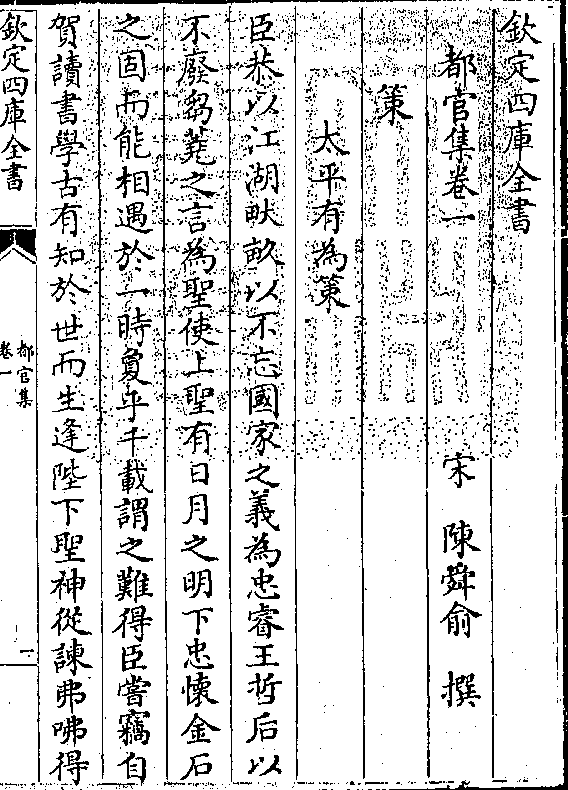 欽定四庫全書
都官集卷一
宋 陳舜俞 撰
策
太平有為策
臣恭以江湖畎畝以不忘國家之義為忠睿王哲后以
不廢芻蕘之言為聖使上聖有日月之明下忠懷金石
之固而能相遇於一時夐乎千載謂之難得臣嘗竊自
賀讀書學古有知於世而生逢陛下聖神從諫弗咈得
欽定四庫全書
都官集
卷一
一